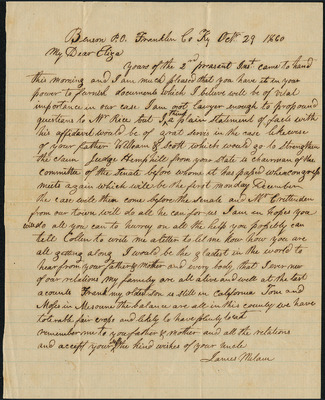 Benson P.O. Franklin Co Ky Octr. 29 1860
My Dear Eliza
yours of the 2nd prasant Inst came to hand
this morning and I am much pleased that you have it in your
power to furnish documents which I believe will be of vital
importance in our case I am not lawyer enough to propound
questions to Mr but I think a plain statment of facts with
his affidavid would be of grat servis in the case likewise
of your father William & Scott which would go to Strengthen
the claim Judge Hemphill from your state is chairman of the
committee of the Senate before whom it has pased when congress
meets again which will be the first monday December
the case will then come before the Senate and Mr Crittenden
from our town will do all he can for us I am in hopes you
will do all you can to hurry on all the help you posibly can
tell Collen to write me a letter to let me how how you are
all geting along I would be the gladest in the world to
hear from your father & mother and every body that I ever new
of our relations my famaley are all alive and well at the last
acounts Frank my oldes son is still in California Tom and
Moses in Missourie the balance are all in this county we have
tolerable fair crops and likely to have plenty to eat
remember me to you father & mother and all the relations
and accept your self the kind wishes of your uncle
James Milam